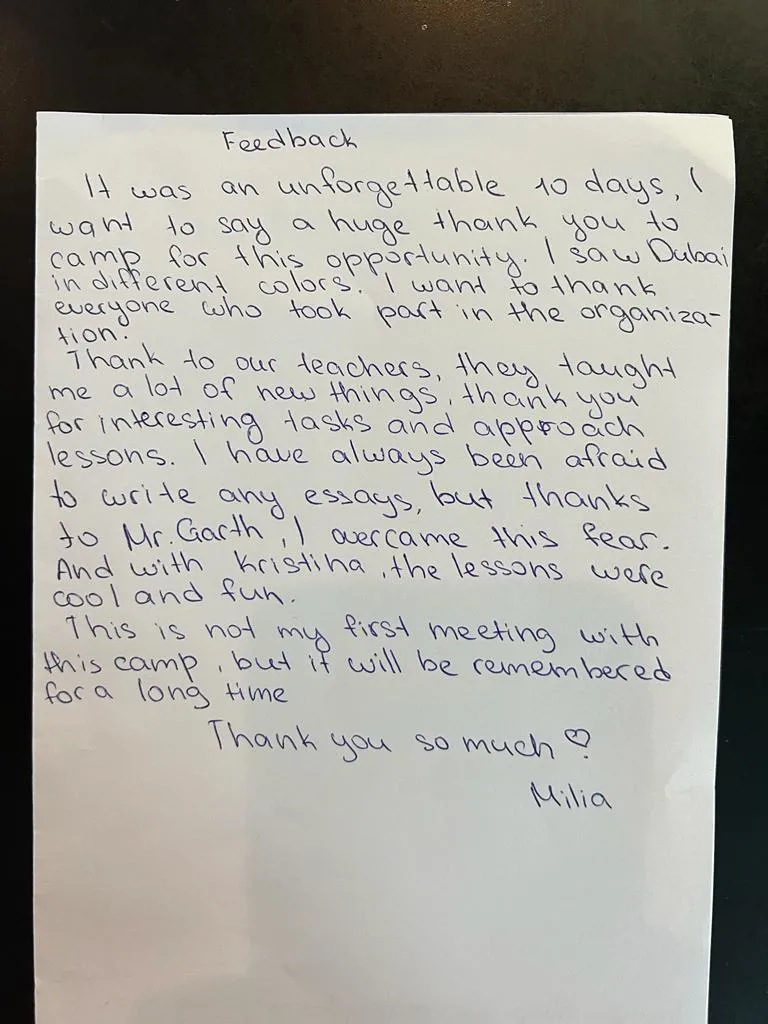 Feedback
It was an unforgettable 10 days, I
want to say a huge thank you to
camp for this opportunity. I saw Dubai
in different colors. I want to thank
everyone who took part in the organiza-
tion.
Thank to our teachers, they taught
me a lot of new things, thank you
for interesting tasks and approach
lessons. I have always been afraid
to write any essays, but thanks
to Mr. Garth, I overcame this fear.
And with Kristina, the lessons were
cool and fun.
This is not my first meeting with
this camp, but it will be remembered
for a long time
Thank you so much ♡
Milia